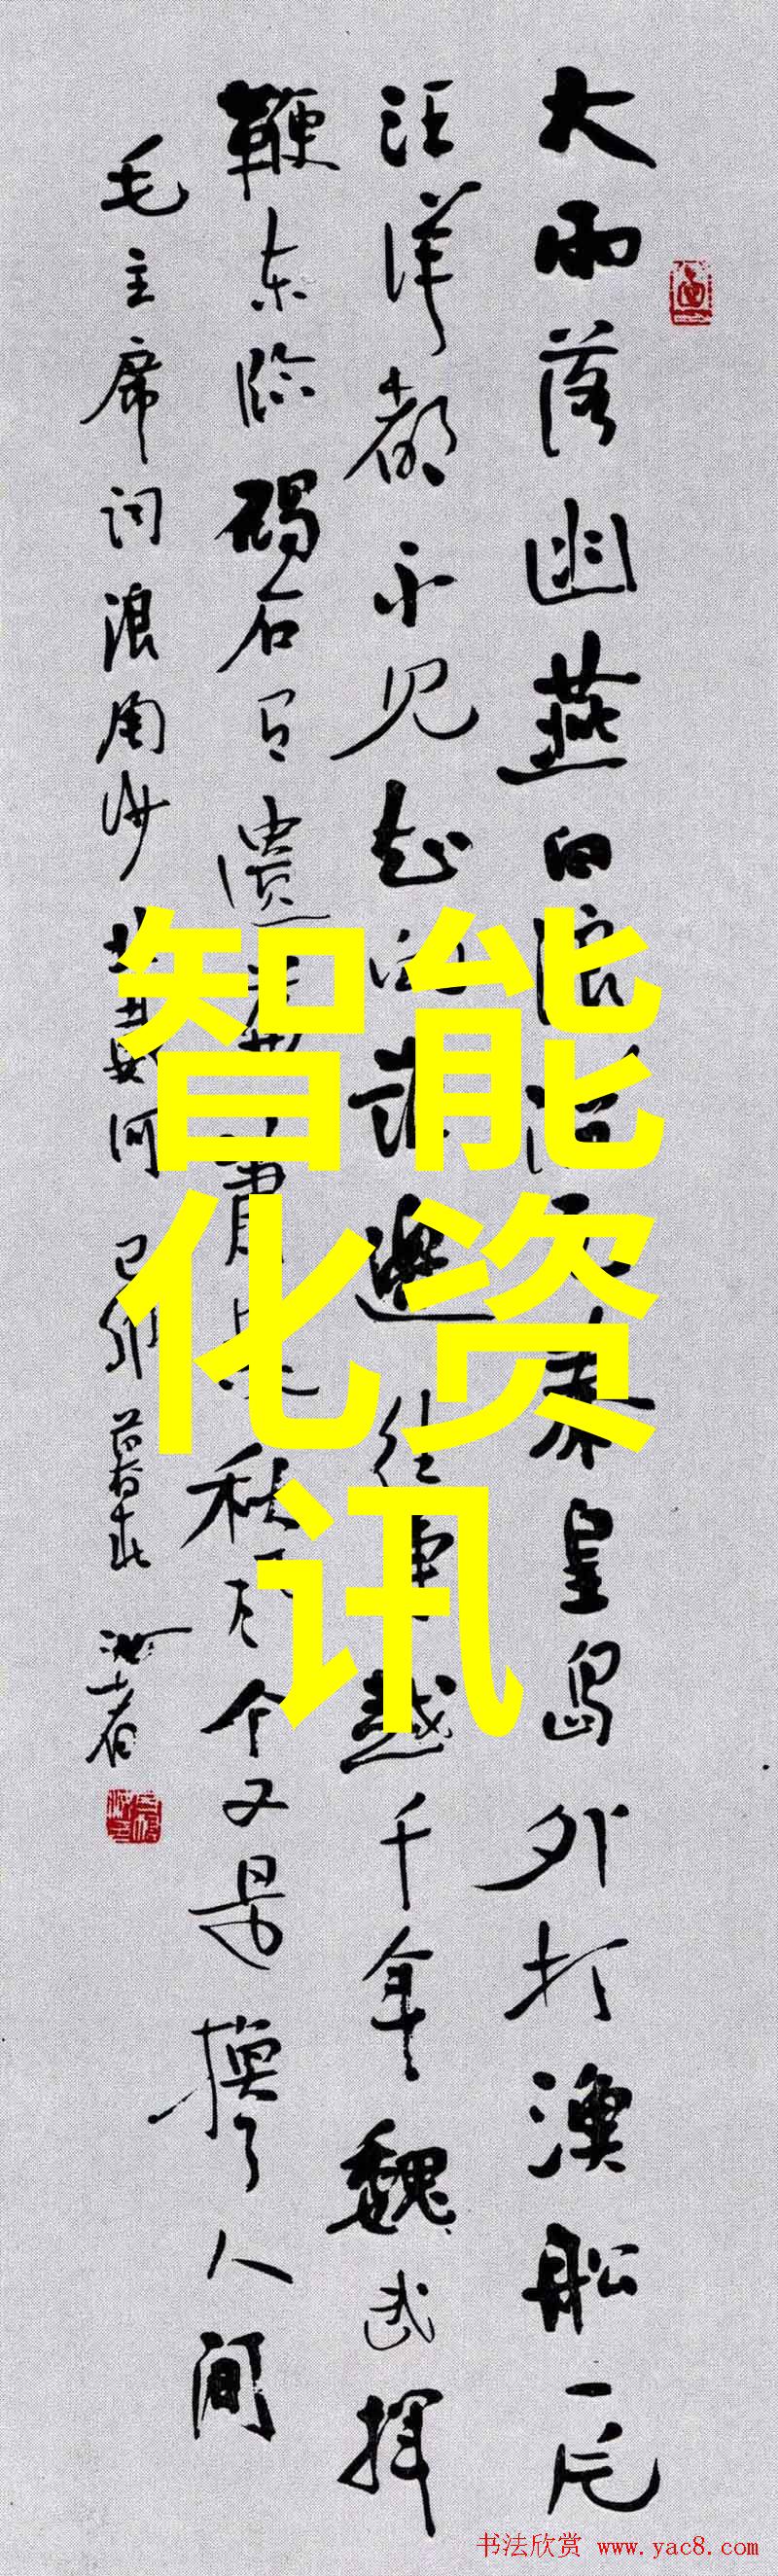 大雨落幽燕白浪滔天秦皇岛外打漁船一片
汪洋都不见知向誰邊往事越千年魏武挥
鞭东临碣石有遗篇萧瑟秋风今又是换了人间
毛主席词浪淘沙北戴河 己卯暮春 沙耆
智能
化资
讯
书法欣赏 www.yac8.com